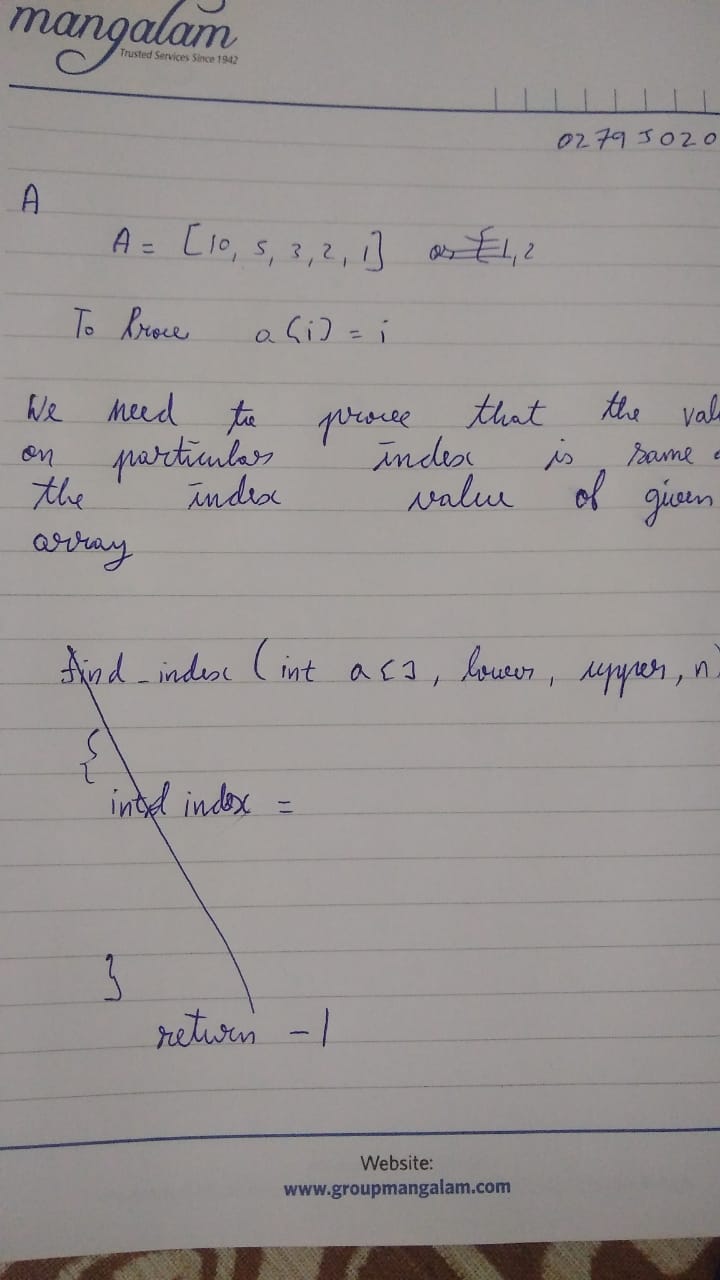 mangalam
Trusted Services Since 1942
02795020
A
A = [10, 5, 3, 2, 1] 1, 2
To Prove a[i] = i
We need to prove that the val
on particular index is same
the index value of given
array
find_index (int a[], lower, upper, n)
{
int index =
}
return -1
Website:
www.groupmangalam.com